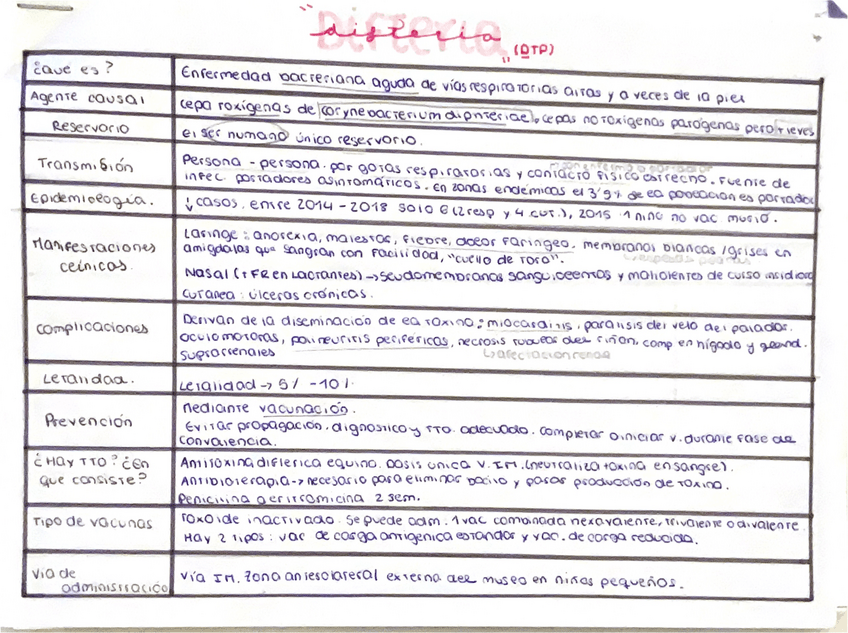 Difteria
"difteria" (DTP)
¿Qué es?
Enfermedad bacteriana aguda de vías respiratorias altas y a veces de la piel
Agente causal
cepa toxígenas de corynebacterium diphteriae, cepas no toxigenas patógenas pero leves
Reservorio
el ser humano único reservorio.
Transmisión
Persona - persona. por gotas respiratorias y contacto físico estrecho. Fuente de
infec. portadores asintomáticos. en zonas endémicas el 3'9% de la población es portador
Epidemiología.
↓ casos. entre 2014 - 2018 solo 6 (2 resp y 4 cut.), 2015 1 niño no vac murió.
Manifestaciones
clínicas.
Laringe: anorexia, malestar, fiebre, dolor faríngeo. membranas blancas /grises en
amígdalas que sangran con facilidad, "cuello de toro".
Nasal (+FR en lactantes) → seudomembranas sanguinolentas y malolientes de curso insidioso
cutanea: úlceras crónicas.
Complicaciones
Derivan de la diseminación de la toxina: miocarditis, paralisis del velo del paladar.
oculomotoras, polineuritis perifericas, necrosis tubular del riñon, comp en hígado y gland.
suprarrenales
↳ afectacion renal
Letalidad.
Letalidad → 5% - 10%
Prevención
Mediante vacunación.
Evitar propagación. diagnostico y TTO. adecuado. completar o iniciar v. durante fase de
convalencia.
¿Hay TTO? ¿En
que consiste?
Antitoxina difterica equino. dosis unica V. IM. (neutraliza toxina en sangre).
Antibioterapia → necesario para eliminar bacilo y parar producción de toxina.
Penicilina o eritromicina 2 sem.
Tipo de vacunas
Toxoide inactivado. Se puede adm. 1 vac combinada hexavalente, trivalente o divalente.
Hay 2 tipos: vac de carga antigenica estandar y vac. de carga reducida.
Vía de
administración
Vía IM. Zona anterolateral externa del muslo en niños pequeños.